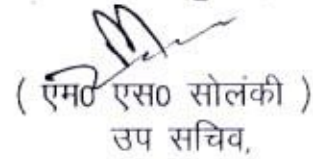 ( एम0 एस0 सोलंकी )
उप सचिव,